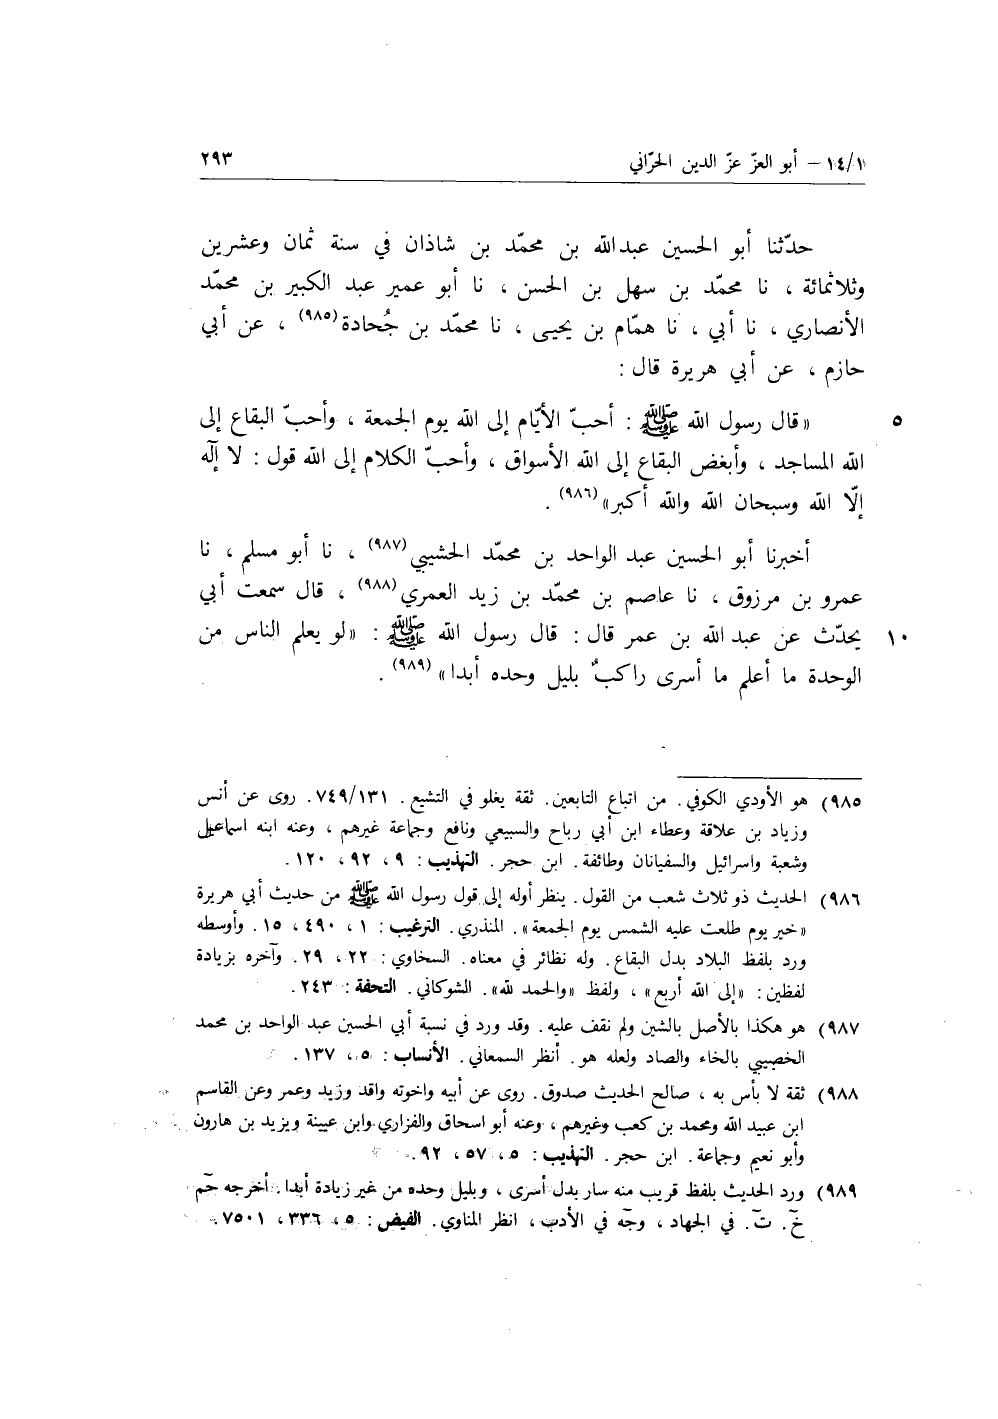 ١٤/١ – أبو العزّ عزّ الدين الحرّاني ٢٩٣
حدّثنا أبو الحسين عبدالله بن محمّد بن شاذان في سنة ثمان وعشرين
وثلاثمائة ، نا محمّد بن سهل بن الحسن ، نا أبو عمير عبد الكبير بن محمّد
الأنصاري ، نا أبي ، نا همّام بن يحيى ، نا محمّد بن جُحادة(٩٨٥) ، عن أبي
حازم ، عن أبي هريرة قال :
٥ «قال رسول الله ﷺ : أحبّ الأيّام إلى الله يوم الجمعة ، وأحبّ البقاع إلى
الله المساجد ، وأبغض البقاع إلى الله الأسواق ، وأحبّ الكلام إلى الله قول : لا إلٓه
إلّا الله وسبحان الله والله أكبر»(٩٨٦) .
أخبرنا أبو الحسين عبد الواحد بن محمّد الحشيبي(٩٨٧) ، نا أبو مسلم ، نا
عمرو بن مرزوق ، نا عاصم بن محمّد بن زيد العمري(٩٨٨) ، قال سمعت أبي
١٠ يحدّث عن عبد الله بن عمر قال : قال رسول الله ﷺ : «لو يعلم الناس من
الوحدة ما أعلم ما أسرى راكبٌ بليل وحده أبدا»(٩٨٩) .
٩٨٥) هو الأودي الكوفي. من اتباع التابعين. ثقة يغلو في التشيع. ٧٤٩/١٣١. روى عن أنس
وزياد بن علاقة وعطاء ابن أبي رباح والسبيعي ونافع وجماعة غيرهم ، وعنه ابنه اسماعيل
وشعبة واسرائيل والسفيانان وطائفة. ابن حجر. التهذيب : ٩ ، ٩٢ ، ١٢٠.
٩٨٦) الحديث ذو ثلاث شعب من القول. ينظر أوله إلى قول رسول الله ﷺ من حديث أبي هريرة
«خير يوم طلعت عليه الشمس يوم الجمعة». المنذري. الترغيب : ١ ، ٤٩٠ ، ١٥. وأوسطه
ورد بلفظ البلاد بدل البقاع. وله نظائر في معناه. السخاوي : ٢٢ ، ٢٩. وآخره بزيادة
لفظين : «إلى الله أربع» ، ولفظ «والحمد لله». الشوكاني. التحفة : ٢٤٣.
٩٨٧) هو هكذا بالأصل بالشين ولم نقف عليه. وقد ورد في نسبة أبي الحسين عبد الواحد بن محمد
الخصيبي بالخاء والصاد ولعله هو. أنظر السمعاني. الأنساب : ٥ ، ١٣٧.
٩٨٨) ثقة لا بأس به ، صالح الحديث صدوق. روى عن أبيه واخوته واقد وزيد وعمر وعن القاسم
ابن عبيد الله ومحمد بن كعب وغيرهم ، وعنه أبو اسحاق والفزاري وابن عيينة ويزيد بن هارون
وأبو نعيم وجماعة. ابن حجر. التهذيب : ٥ ، ٥٧ ، ٩٢.
٩٨٩) ورد الحديث بلفظ قريب منه سار بدل أسرى ، وبليل وحده من غير زيادة أبدا. أخرجه حٓم
خٓ. تٓ. في الجهاد ، وجٓه في الأدب ، انظر المناوي. الفيض : ٥ ، ٣٣٦ ، ٧٥٠١.